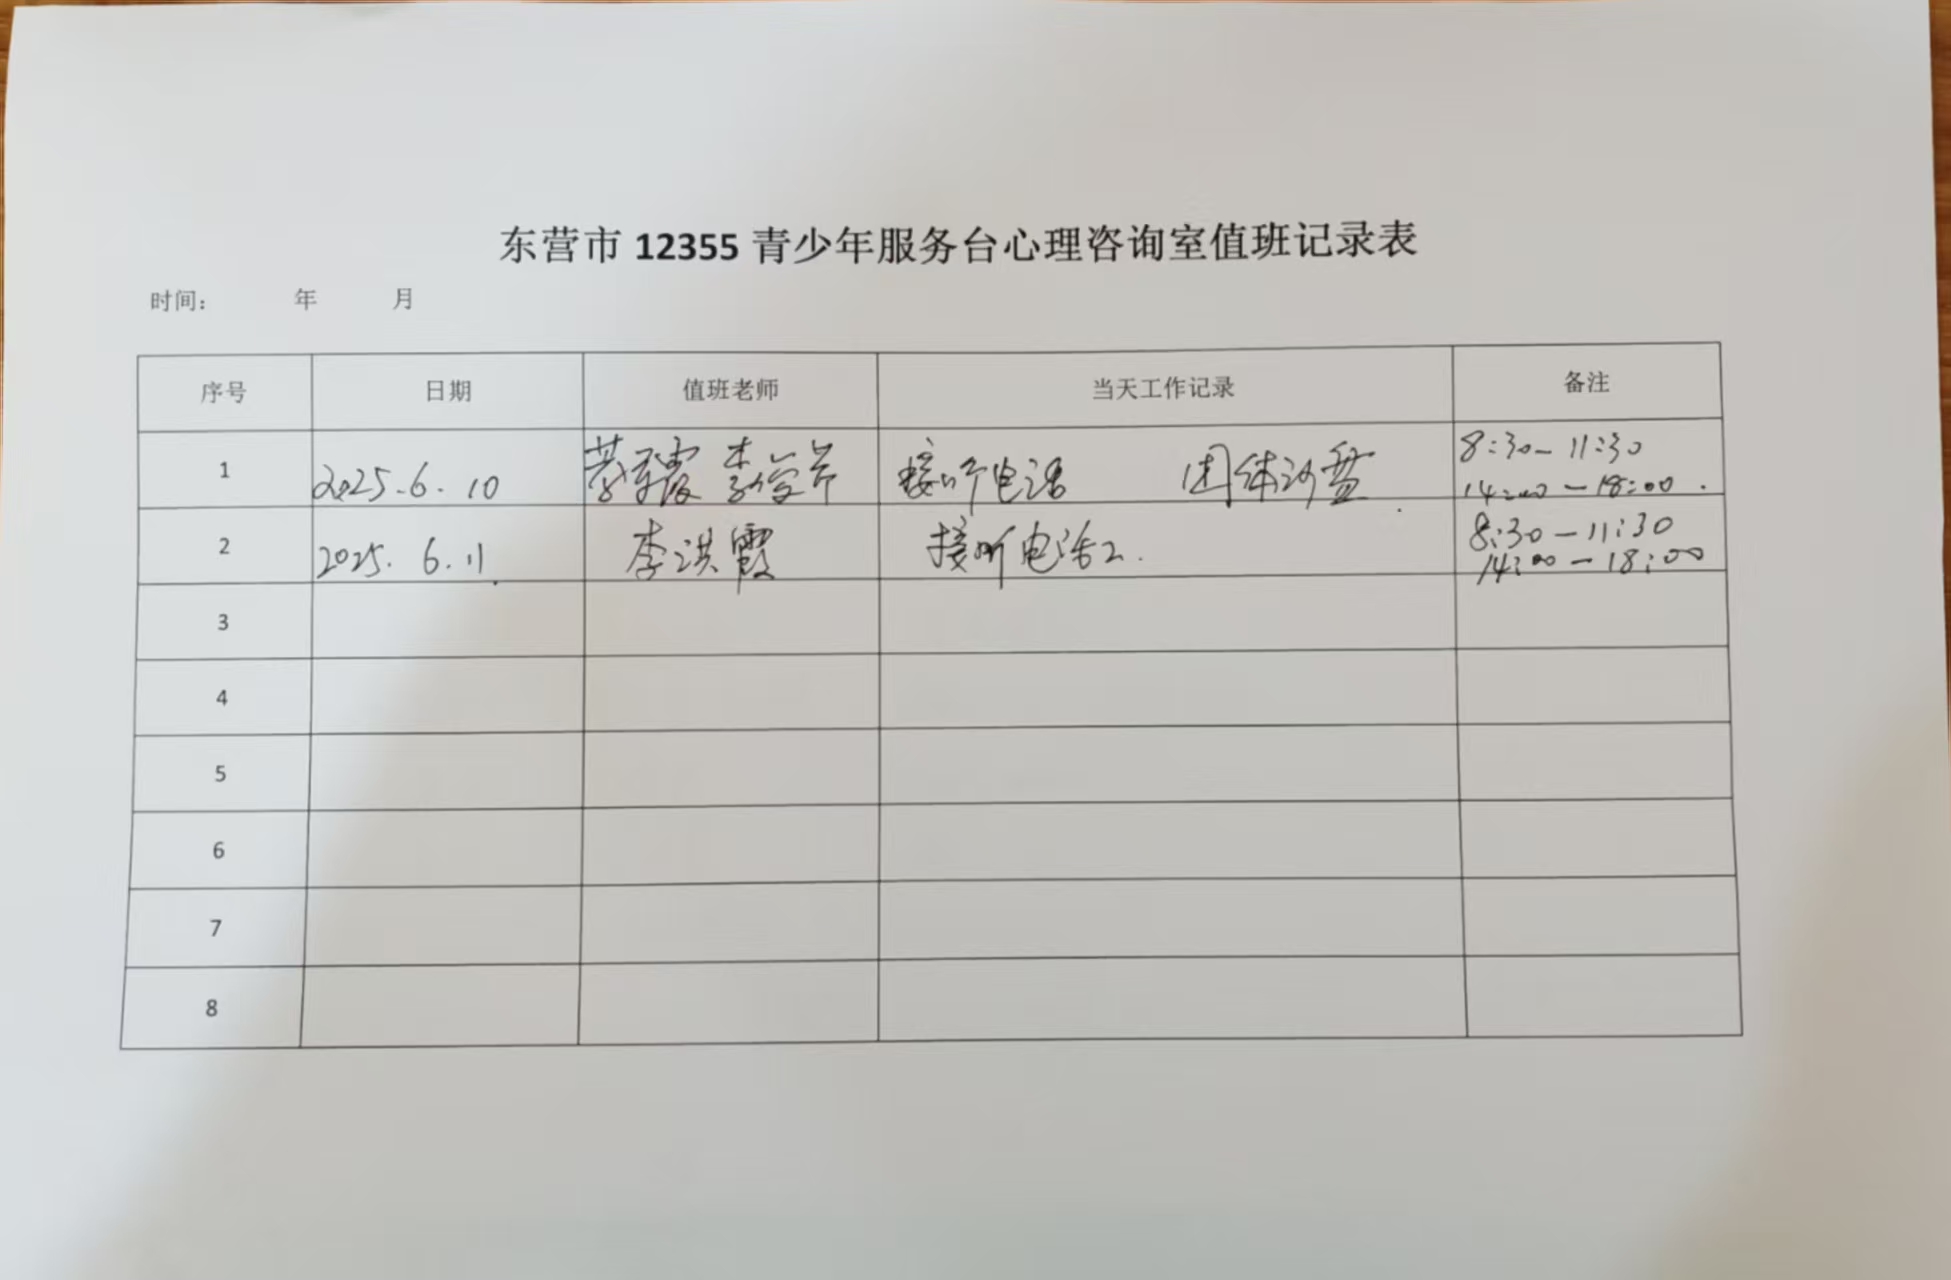 东营市 12355 青少年服务台心理咨询室值班记录表
时间： 年 月
序号 日期 值班老师 当天工作记录 备注
1 2025.6.10 李 接听电话 团体沙盘. 8:30-11:30
14:00-18:00.
2 2025.6.11. 李洪霞 接听电话2. 8:30-11:30
14:00-18:00
3
4
5
6
7
8